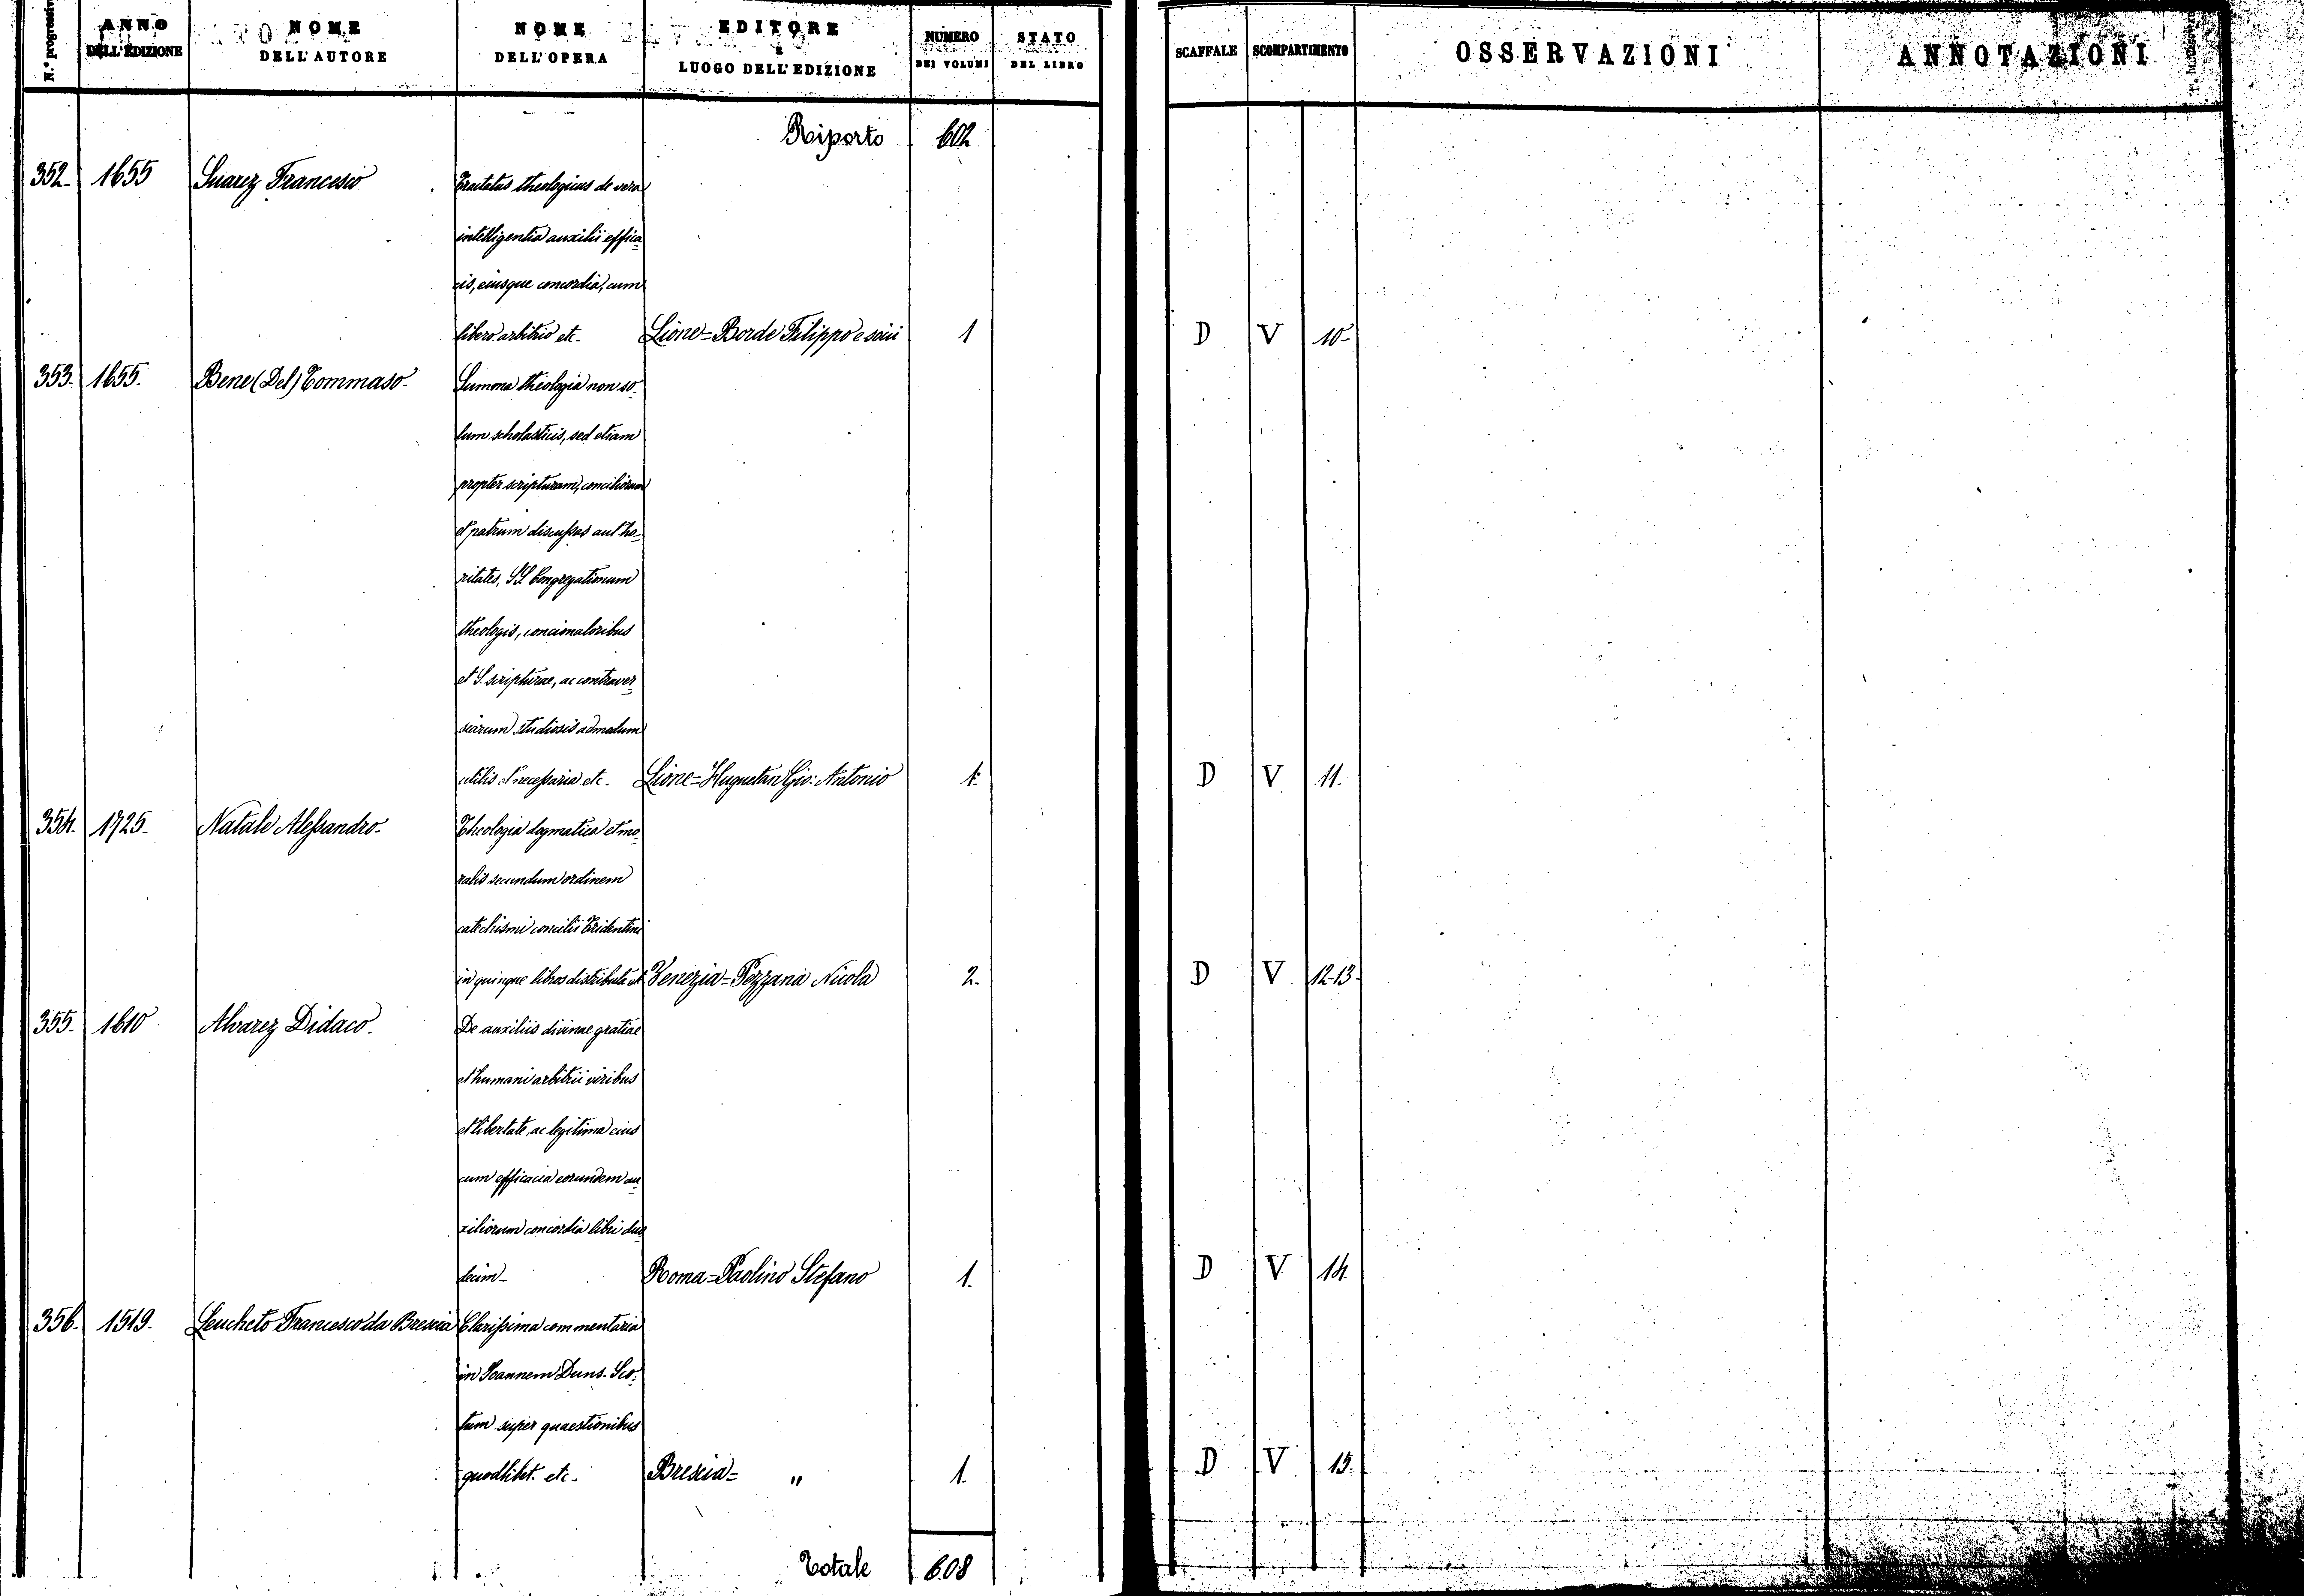 N.° progressivo ANNO DELL'EDIZIONE NOME DELL'AUTORE NOME DELL'OPERA EDITORE E LUOGO DELL'EDIZIONE NUMERO DEI VOLUMI STATO DEL LIBRO SCAFFALE SCOMPARTIMENTO OSSERVAZIONI ANNOTAZIONI
Riporto 602
352. 1655 Suarez Francesco Tractatus theologicus de vera
intelligentia auxilii effica
cis, eiusque concordia, cum
libero arbitrio etc. Lione = Borde Filippo e socii 1 D V 10-
353. 1655. Bene (Del) Tommaso. Summa theologia non so-
lum scholasticis, sed etiam
propter scripturam, conciliorum
et patrum discussas autho-
ritates, SS. Congregationum
theologis, concionatoribus
et S. scripturae, ac contraver
siarum studiosis admodum
utilis et necessaria etc. Lione = Huguetan Gio: Antonio 1. D V 11.
354. 1725. Natale Alessandro. Theologia dogmatica et mo-
ralis secundum ordinem
catechismi concilii Tridentini
in quinque libros distributa Venezia = Pezzana Nicola 2. D V 12-13.
355. 1610 Alvarez Didaco. De auxiliis divinae gratiae
et humani arbitrii viribus
et libertate, ac legitima eius
cum efficacia eorundem au
xiliorum concordia libri duo
decim- Roma = Paolino Stefano 1. D V 14.
356. 1519. Leucheto Francesco da Brescia Clarissima commentaria
in Joannem Duns. Sco-
tum super quaestionibus
quodlibet. etc. Brescia = " 1. D V 15.
Totale 608